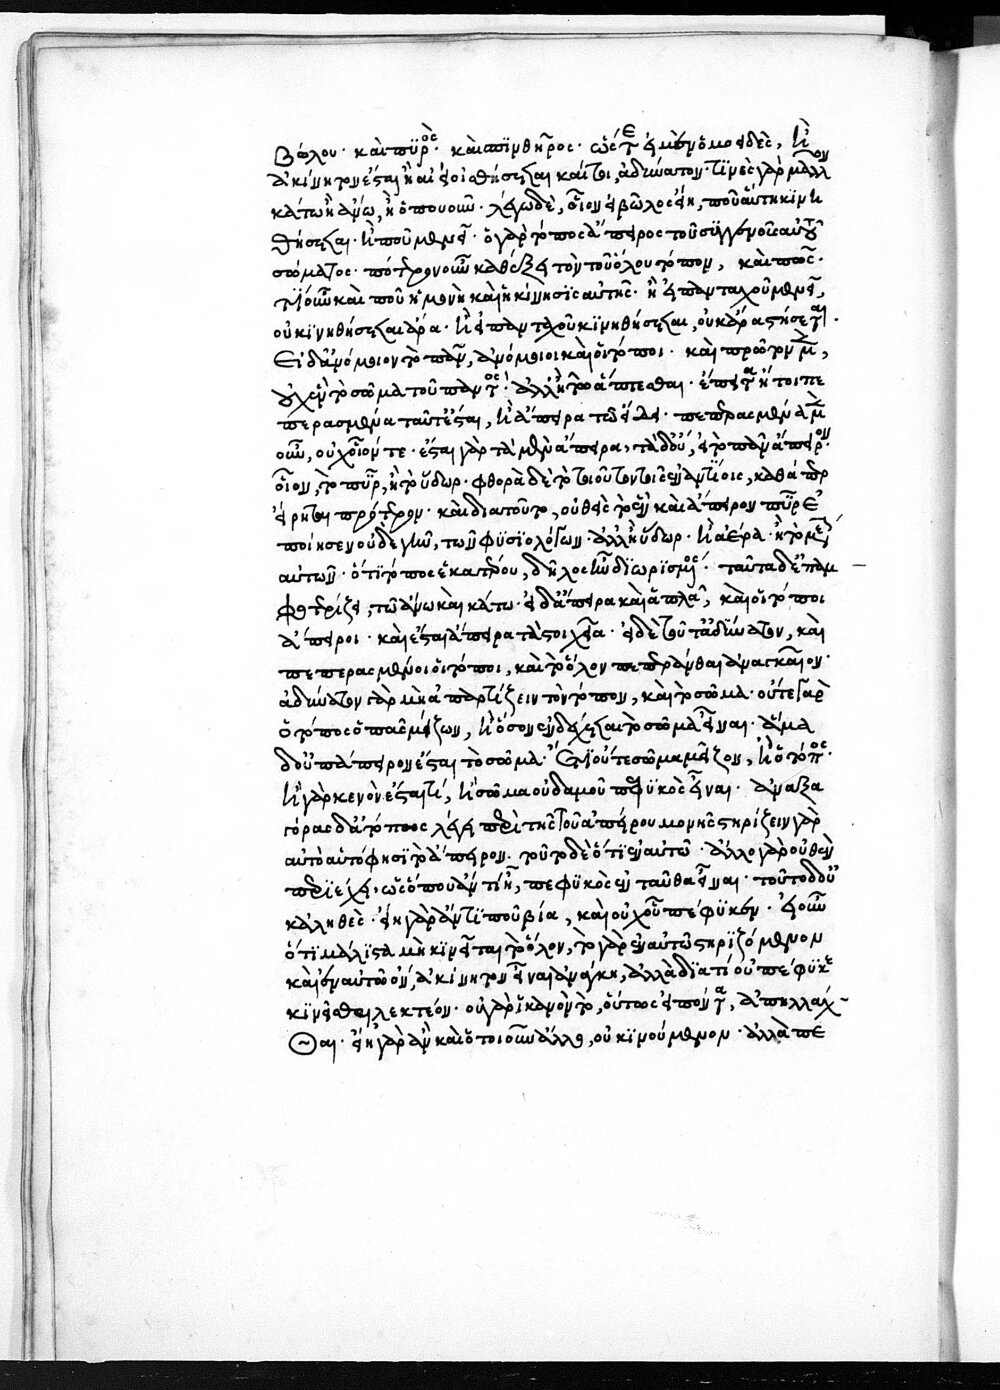 βώλου· καὶ πυρὸς· καὶ σπινθῆρος· ὥστε εἰ μὲν ὁμοειδὲς, ἢ
ἀκίνητον ἔσται ἢ αἰεὶ οἰσθήσεται καίτοι, ἀδύνατον· τί γὰρ μᾶλλον
κάτω ἢ ἄνω, ἢ ὁπουοῦν· λέγω δὲ, οἷον εἰ βῶλος εἴη, ποῦ αὕτη κινη
θήσεται· ἢ ποῦ μενεῖ· ὁ γὰρ τόπος ἄπειρος τοῦ συγγενοῦς αὐτοῦ
σώματος· πότερον οὖν καθέξει τὸν τοῦ ὅλου τόπον, καὶ πῶς·
τί οὖν καὶ ποῦ ἡ μονὴ καὶ ἡ κίνησις αὐτῆς· ἢ πανταχοῦ μενεῖ,
οὐ κινηθήσεται ἄρα· ἢ εἰ πανταχοῦ κινηθήσεται, οὐκ ἄρα στήσεται·
εἰ δ' ἀνόμοιον τὸ πᾶν, ἀνόμοιοι καὶ οἱ τόποι· καὶ πρῶτον μὲν,
οὐχ ἓν τὸ σῶμα τοῦ παντὸς· ἀλλ' ἢ τῷ ἅπτεσθαι· ἔπειτα ἤτοι πε
περασμένα ταῦτ' ἔσται, ἢ ἄπειρα τῷ εἴδει· πεπερασμένα μὲν
οὖν, οὐχ οἷόν τε· ἔσται γὰρ τὰ μὲν ἄπειρα, τὰ δ' οὔ, εἰ τὸ πᾶν ἄπειρον·
οἷον, τὸ πῦρ, ἢ τὸ ὕδωρ· φθορὰ δὲ τὸ τοιοῦτον τοῖς ἐναντίοις, καθάπερ
εἴρηται πρότερον· καὶ διὰ τοῦτο, οὐθεὶς τὸ ἓν καὶ ἄπειρον πῦρ ἐ
ποίησεν οὐδὲ γῆν, τῶν φυσιολόγων· ἀλλ' ἢ ὕδωρ· ἢ ἀέρα· ἢ τὸ μέσον
αὐτῶν· ὅτι τόπος ἑκατέρου, δῆλος ἦν διωρισμένος· ταῦτα δ' ἐπαμ
φοτερίζει, τῷ ἄνω καὶ κάτω· εἰ δ' ἄπειρα καὶ ἁπλᾶ, καὶ οἱ τόποι
ἄπειροι· καὶ ἔσται ἄπειρα τὰ στοιχεῖα· εἰ δὲ τοῦτ' ἀδύνατον, καὶ
πεπερασμένοι οἱ τόποι, καὶ τὸ ὅλον πεπεράνθαι ἀναγκαῖον·
ἀδύνατον γὰρ μὴ ἀπαρτίζειν τὸν τόπον, καὶ τὸ σῶμα· οὔτε γὰρ
ὁ τόπος ὁ πᾶς μείζων, ἢ ὅσον ἐνδέχεται τὸ σῶμα εἶναι· ἅμα
δ' οὐδ' ἄπειρον ἔσται τὸ σῶμα· οὔτε σῶμα μεῖζον, ἢ ὁ τόπος·
ἢ γὰρ κενὸν ἔσται τί, ἢ σῶμα οὐδαμοῦ πεφυκὸς εἶναι· ἀναξα
γόρας δ' ἀτόπως λέγει περὶ τῆς τοῦ ἀπείρου μονῆς στηρίζειν γὰρ
αὐτὸ αὑτό φησι τὸ ἄπειρον· τοῦτο δὲ ὅτι ἐν αὑτῷ· ἄλλο γὰρ οὐθὲν
περιέχει, ὡς ὅπου ἄν τι ᾖ, πεφυκὸς ἐνταῦθα εἶναι· τοῦτο δ' οὐ
κ ἀληθές· εἴη γὰρ ἄν τι ποῦ βίᾳ, καὶ οὐχ οὗ πέφυκεν· εἰ οὖν
ὅτι μάλιστα μὴ κινεῖται τὸ ὅλον, τὸ γὰρ ἐν αὑτῷ στηριζόμενον
καὶ ἐν αὑτῷ ὂν, ἀκίνητον εἶναι ἀνάγκη, ἀλλὰ διὰ τί οὐ πέφυκε
κινεῖσθαι λεκτέον· οὐ γὰρ ἱκανὸν τὸ, οὕτως εἰπόντα, ἀπηλλάχ
θαι· εἴη γὰρ ἂν καὶ ὁτιοῦν ἄλλο, οὐ κινούμενον· ἀλλὰ πε